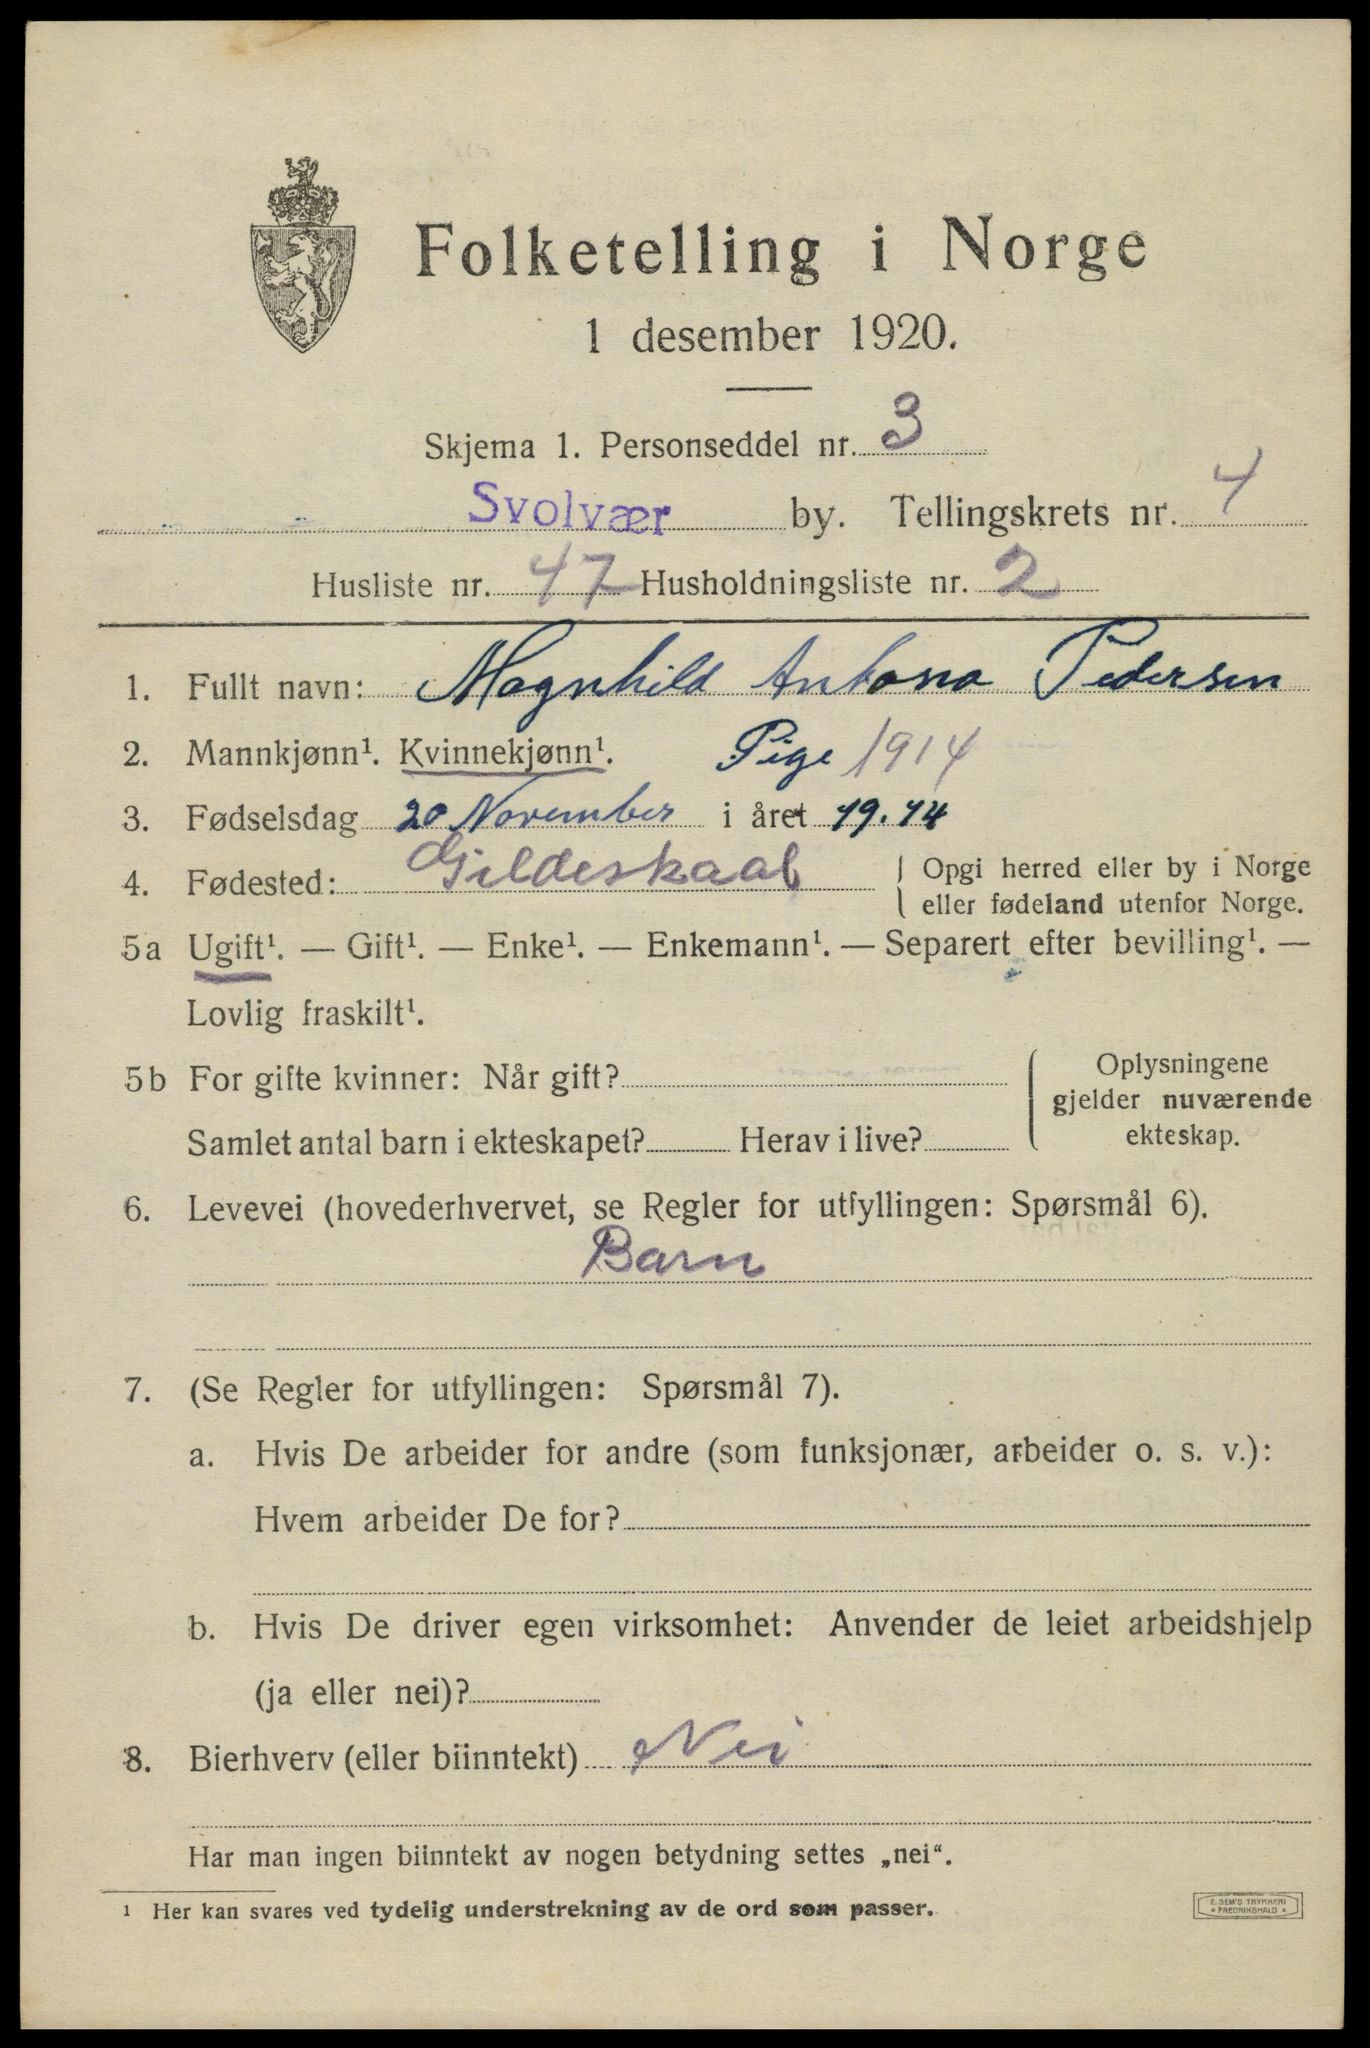 Folketelling i Norge
1 desember 1920.
Skjema 1. Personseddel nr. 3
Svolvær by. Tellingskrets nr. 4
Husliste nr. 47 Husholdningsliste nr. 2
1. Fullt navn: Magnhild Antona Pedersen
2. Mannkjønn¹. Kvinnekjønn¹. Pige 1914
3. Fødselsdag 20 November i året 19.14
4. Fødested: Gildeskaal { Opgi herred eller by i Norge
eller fødeland utenfor Norge.
5a Ugift¹. — Gift¹. — Enke¹. — Enkemann¹. — Separert efter bevilling¹. —
Lovlig fraskilt¹.
5b For gifte kvinner: Når gift?
Samlet antal barn i ekteskapet? Herav i live?
Oplysningene
gjelder nuværende
ekteskap.
6. Levevei (hovederhvervet, se Regler for utfyllingen: Spørsmål 6).
Barn
7. (Se Regler for utfyllingen: Spørsmål 7).
a. Hvis De arbeider for andre (som funksjonær, arbeider o. s. v.):
Hvem arbeider De for?
b. Hvis De driver egen virksomhet: Anvender de leiet arbeidshjelp
(ja eller nei)?
8. Bierhverv (eller biinntekt) Nei
Har man ingen biinntekt av nogen betydning settes „nei“.
¹ Her kan svares ved tydelig understrekning av de ord som passer.
E. SEM'S TRYKKERI
* FREDRIKSHALD *